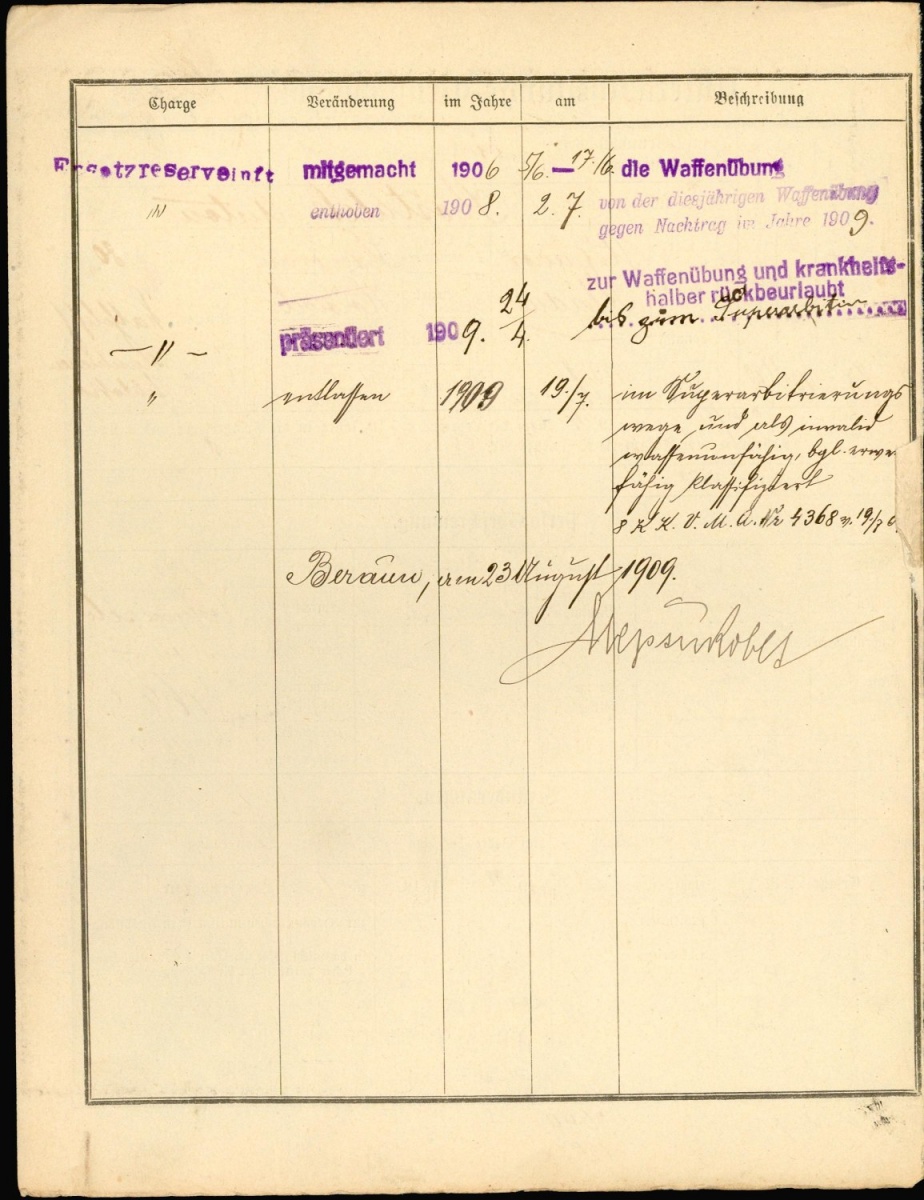 Charge Veränderung im Jahre am Beschreibung
Ersatzreserveinft mitgemacht 1906 5/6. — 17./6. die Waffenübung
" enthoben 1908. 2. 7. von der diesjährigen Waffenübung
gegen Nachtrag im Jahre 1909.
zur Waffenübung und krankheits-
halber rückbeurlaubt
— " — präsentiert 1909. 24/4. bis zum
" entlassen 1909 19./7. im Superarbitrierungs
wege und als invalid
waffenunfähig, bgl. erwe
fähig klassifiziert
K. K. V. M. A. Nr 4368 v. 19/7
Beraun, am 23 August 1909.